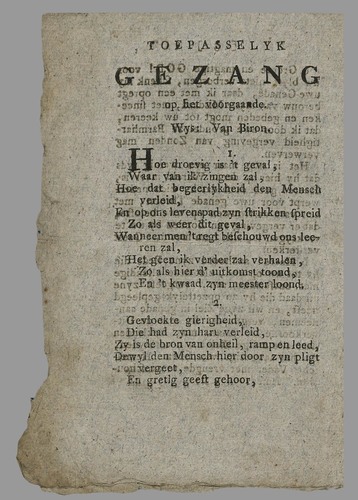 TOEPASSELYK
GEZANG
op het voorgaande.
Wys: Van Biron.
1.
Hoe droevig is 't geval,
Waar van ik zingen zal,
Hoe dat begeerlykheid den Mensch
verleid,
En op ons levenspad zyn strikken spreid
Zo als weer dit geval,
Wanneer men 't regt beschouwd ons lee-
ren zal,
Het geen ik verder zal verhalen,
Zo als hier d' uitkomst toond,
En 't kwaad zyn meester loond.
2.
Gevloekte gierigheid,
Die had zyn hart verleid,
Zy is de bron van onheil, ramp en leed,
Dewyl den Mensch hier door zyn pligt
vergeet,
En gretig geeft gehoor,